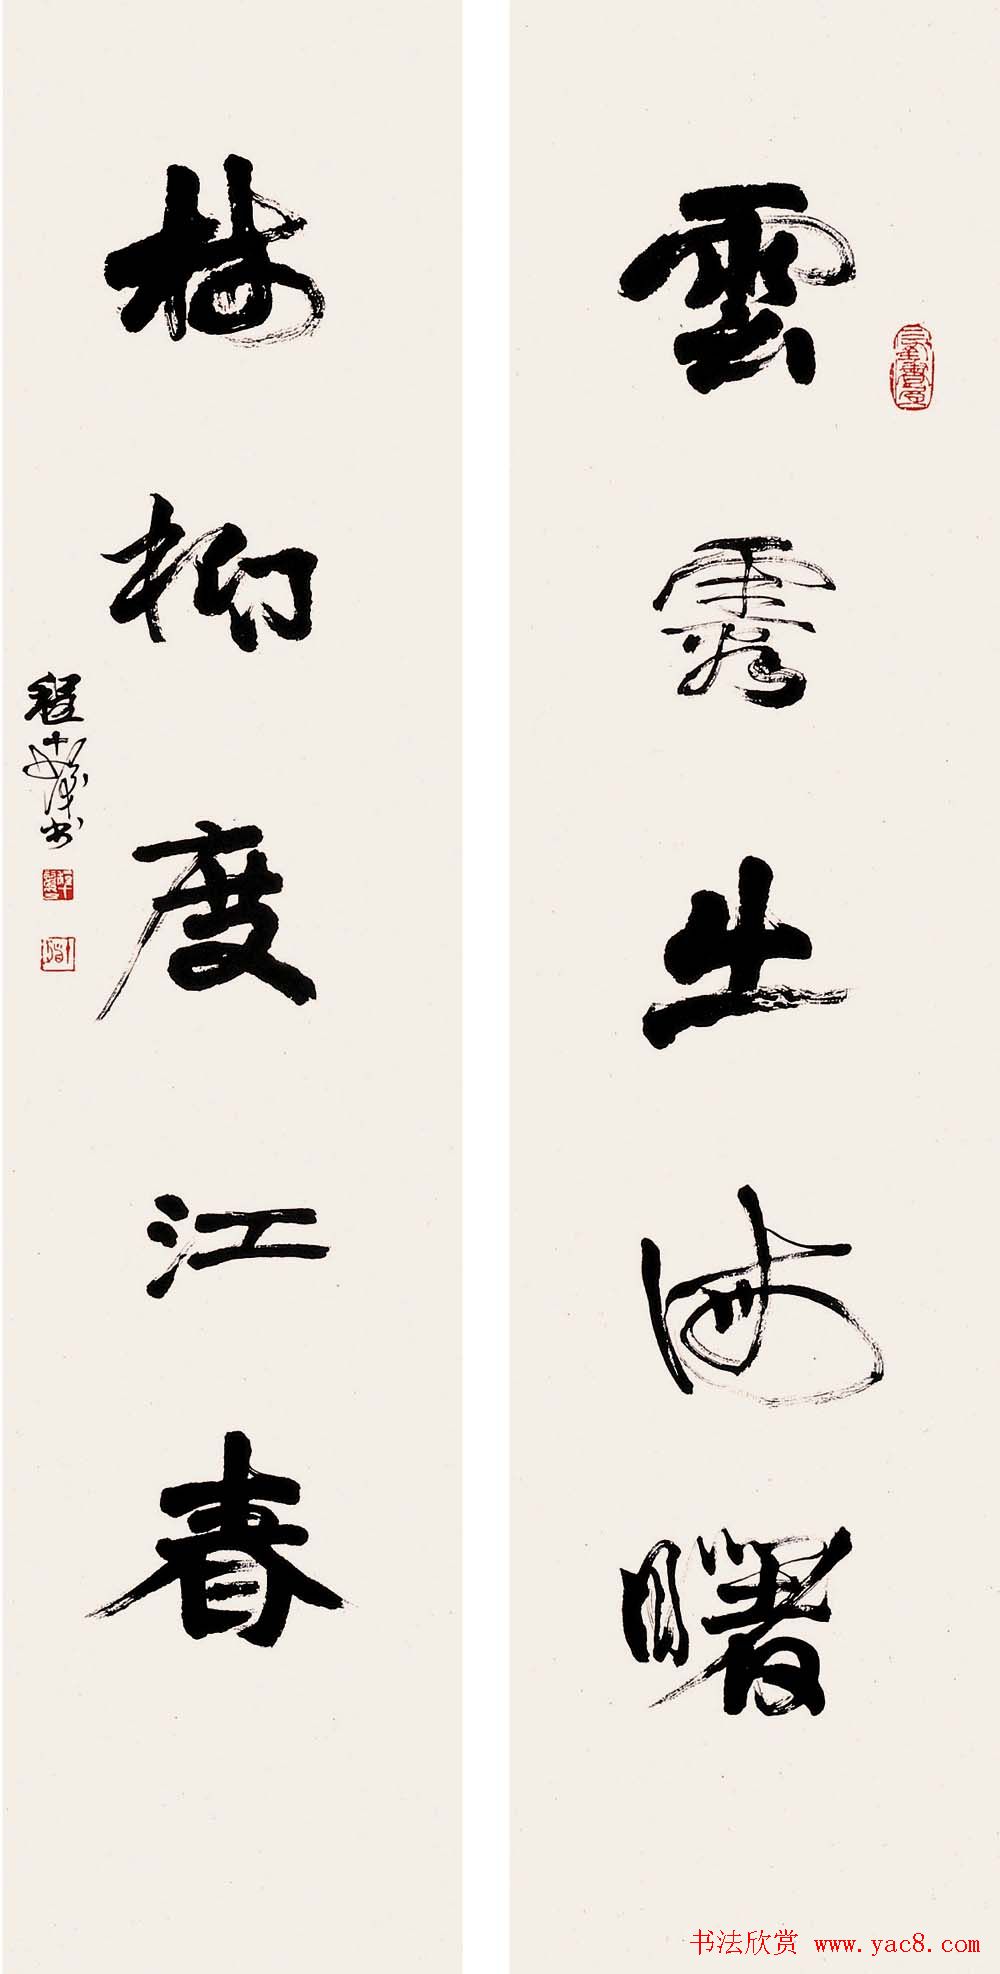 雲霞出海曙
梅柳度江春
程十發書
书法欣赏 www.yac8.com